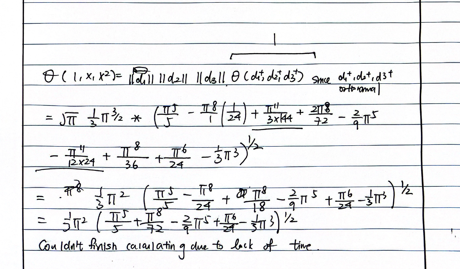 1
θ(1, x, x²) = ||d₁|| ||d₂|| ||d₃|| θ(d₁⁺, d₂⁺, d₃⁺) since d₁⁺, d₂⁺, d₃⁺ orthonormal
= √π 1/3 π^(3/2) * (π⁵/5 − π⁸/1 (1/24) + π¹¹/(3×144) + 2π⁸/72 − 2/9 π⁵
− π¹¹/(12×24) + π⁸/36 + π⁶/24 − 1/3 π³)^(1/2)
= 1/3 π² (π⁵/5 − π⁸/24 + π⁸/18 − 2/9 π⁵ + π⁶/24 − 1/3 π³)^(1/2)
= 1/3 π² (π⁵/5 + π⁸/72 − 2/9 π⁵ + π⁶/24 − 1/3 π³)^(1/2)
Couldn't finish calculating due to lack of time.